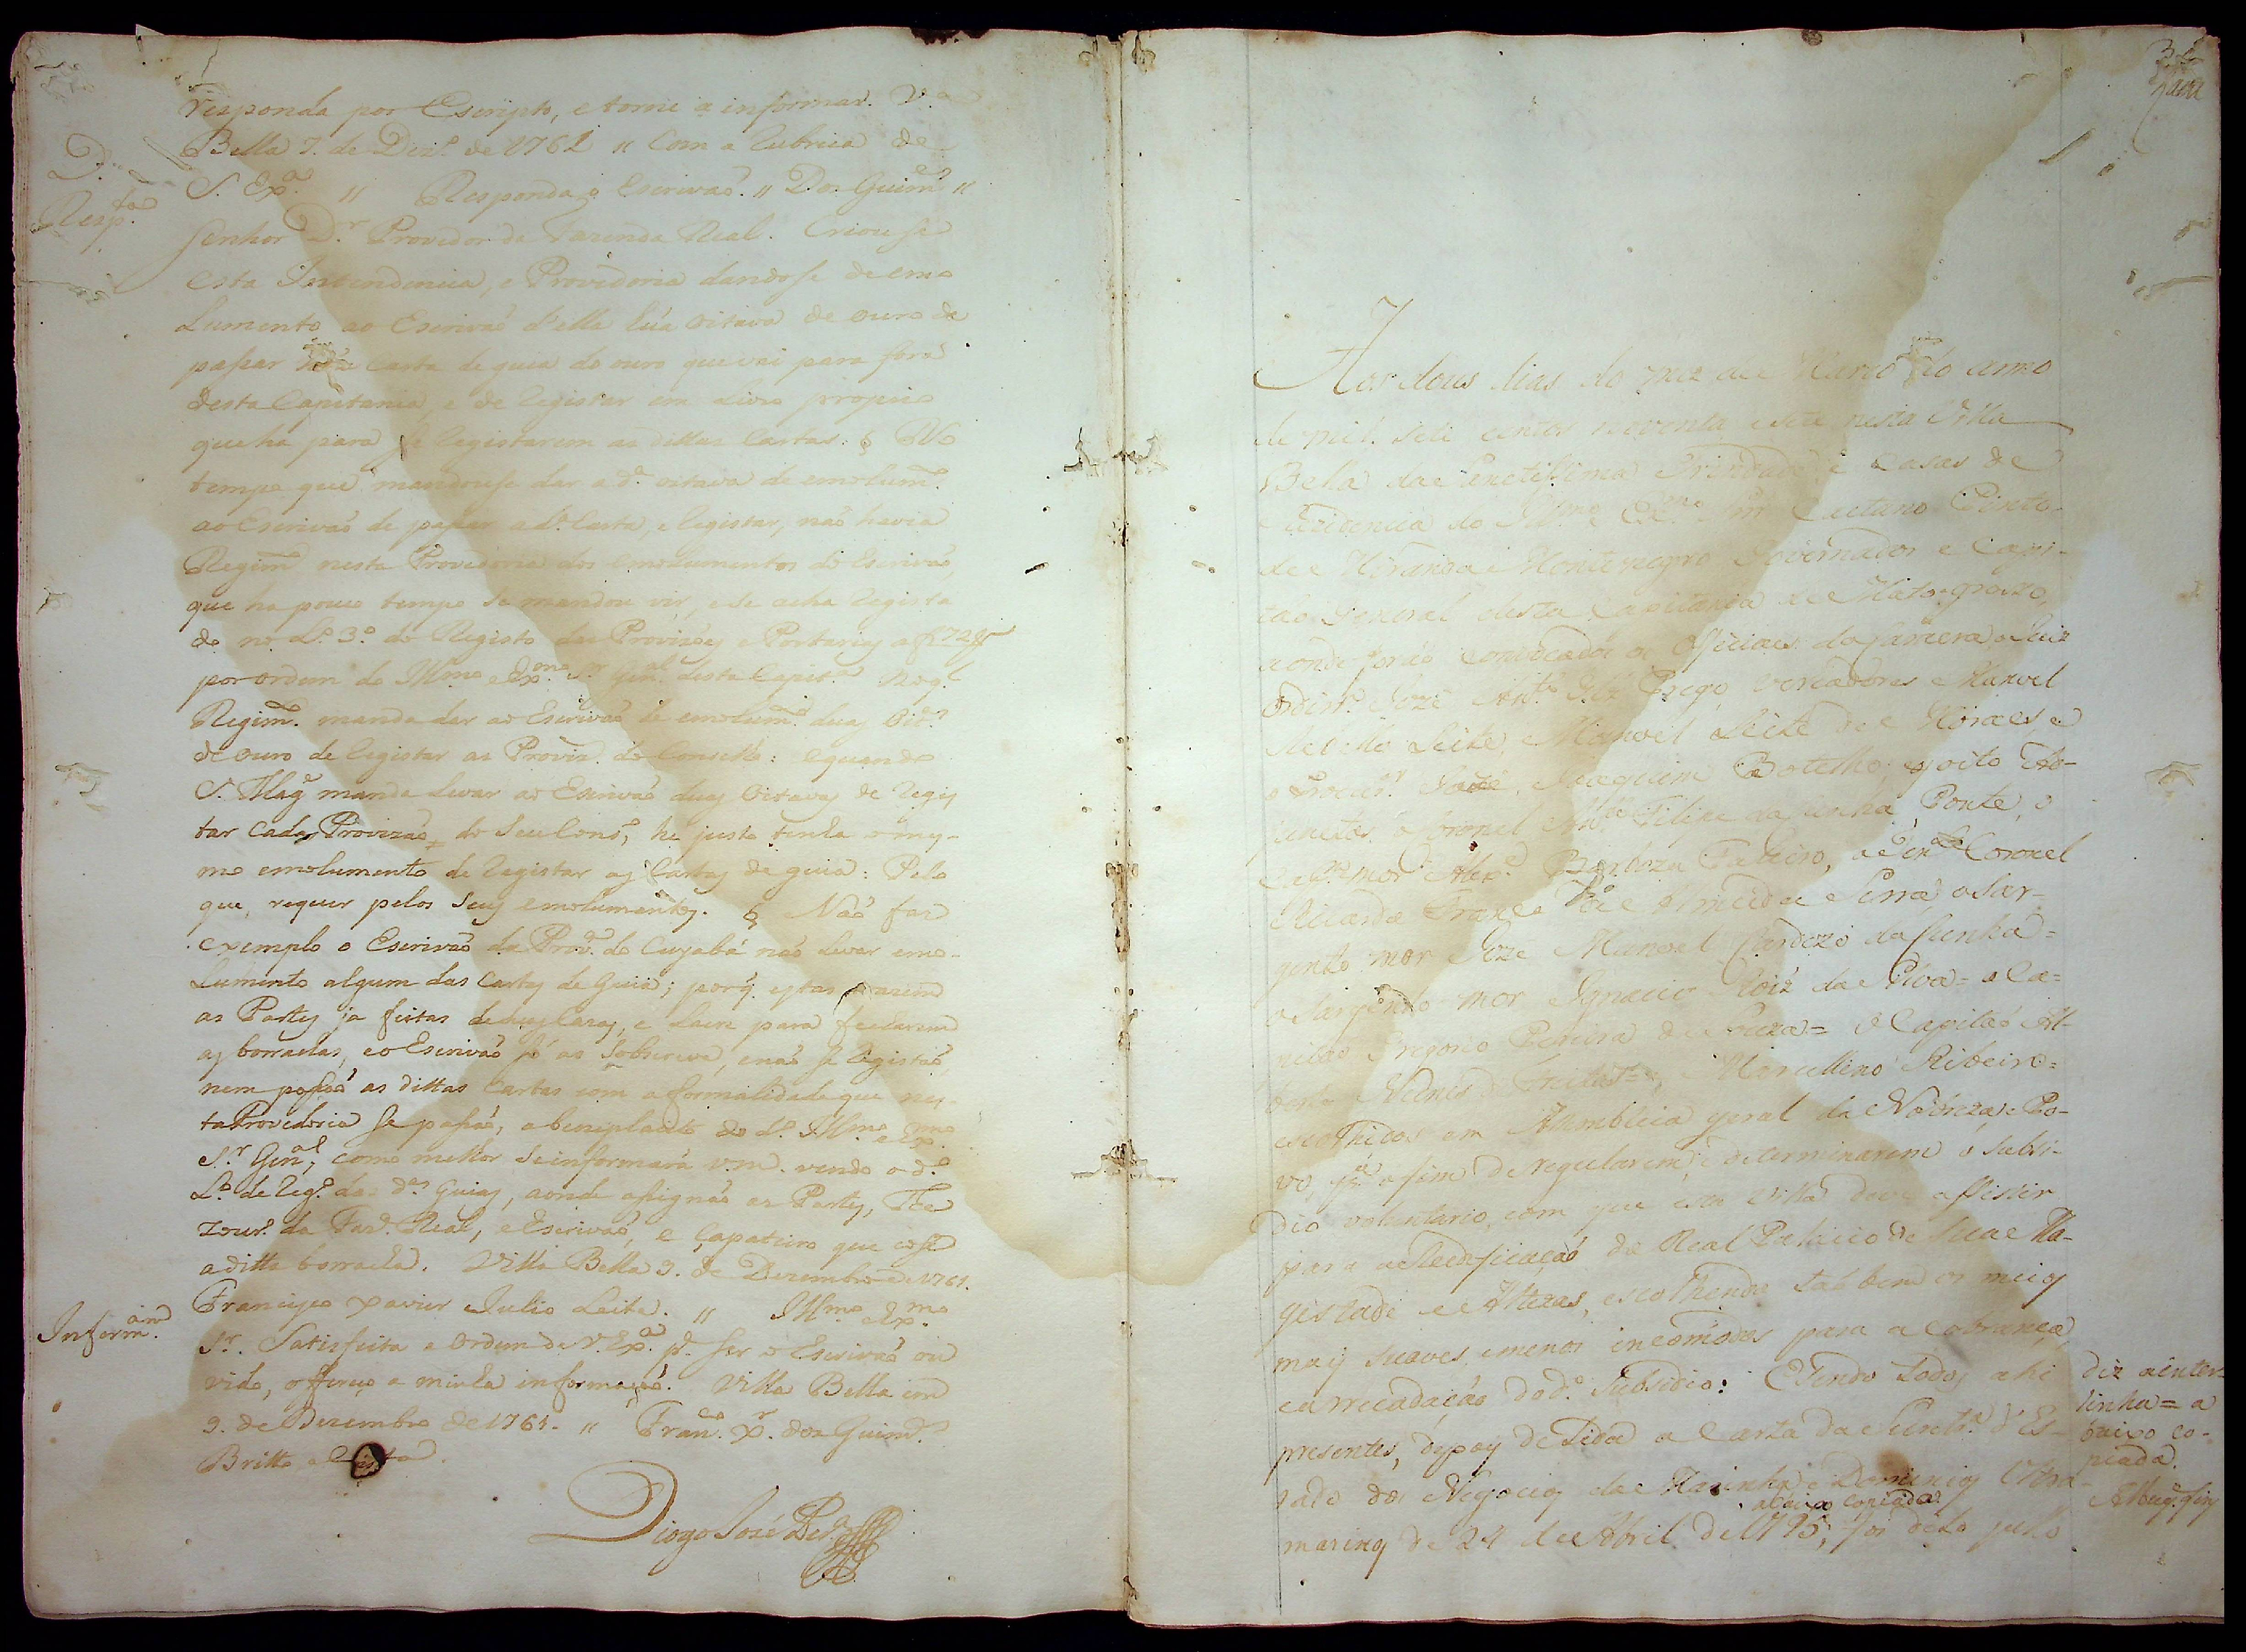 responda por Escripto, e torne a informar. V.ª
Bella 7. de Dez.º de 1761 〃 Com a Rubrica de
S. Exª. 〃 Responda o Escrivaõ. 〃 Dos Guim.es 〃
D.
Resp.ta
Senhor D.r Provedor da Fazenda Real. Criou se
esta Intendencia, e Provedoria dandose de emo
lumento ao Escrivaõ d'ella húa oitava de ouro de
passar Carta de guia do ouro que vai para fora
desta Capitania, e de Registar em Livro proprio
que ha para se Registarem as dittas Cartas: § No
tempo que mandouse dar a d.ª oitava de emolum.to
ao Escrivaõ de passar a d.ª Carta, e Registar, naõ havia
Regim.to nesta Provedoria dos emolumentos do Escrivaõ,
que ha pouco tempo se mandou vir, e se acha Regista
do no L.º 3.º do Registo das Provizões e Portarias a f 72
por ordem do Ill.mo e Ex.mo S.r Gen.al desta Capit.ª No q.l
Regim.to manda dar ao Escrivaõ de emolum.to duas oit.as
de ouro de Registar as Proviz. do Conselho: e quando
S. Mag.e manda levar ao Escrivaõ duas oitavas de Regis
tar cada Provizaõ do Seu Cons.º, he justo tenha o mes-
mo emolumento de Registar as Cartas de guia: Pelo
que, requer pelos seus emolumentos. § Naõ faz
exemplo o Escrivaõ da Prov.ª do Cuyabá naõ levar emo-
lumento algum das Cartas de Guia; porq. estas trazem
as Partes ja feitas de suas Cazas, e Lacre para fecharem
as borrachas, e o Escrivaõ só as Sobscreve, e naõ se Registaõ
nem passaõ as dittas Cartas com a formalidade que nes-
ta Provedoria se passaõ, a beneplacito do d.º Ill.mo e Ex.mo
S.r Gen.al, como melhor se informará v.m. vendo o d.º
L.º de Reg.º das d.as Guias, aonde assignaõ as Partes, The
zour.º da Faz.da Real, e Escrivaõ, e Çapateiro que coze
a ditta borracha. Villa Bella 9. de Dezembro de 1761.
Francisco Xavier Julio Leite. 〃 Ill.mo e Ex.mo
Inform.am
S.r. Satisfeita a Ordem de V. Exª. p.ª ser o Escrivaõ ou
vido, offereço a minha informaçaõ. Villa Bella em
9. de Dezembro de 1761. 〃 Fran.co X.er dos Guim.es
Britto e
Diogo José Per.ª
Aos dous dias do mez de Março do anno
de mil sete centos noventa e sete nesta Villa
Bella da Sanctissima Trindade e Casas de
Rezidencia do Ill.mo e Ex.mo Snr Caetano Pinto
de Miranda Montenegro Governador e Capi-
taõ General desta Capitania de Mato-grosso,
aonde foraõ convocados os Officiaes da Camera o Juiz
Ordin.º Jozé Ant.º Glz Prego, vereadores Manoel
Rebello Leite, Manoel Leite de Moraes, e
o Procur.r Jozé Joaquim Botelho, e os oito Ad-
junctos o Coronel Ant.º Filipe da Cunha Ponte, o
Cap.m mor Alex.e Barboza Fabeiro, o Ten.e Coronel
Ricardo Franco de Almeida Serra, o Sar-
gento mor Joze Manoel Cardozo da Cunha =
o Sargento mor Ignacio Roiz da Silva = o Ca-
pitaõ Gregorio Pereira de Souza = O Capitaõ Al-
berto Nunes de Freitas =, Marcellino Ribeiro =
escolhidos em Assembleia geral da Nobreza e Po-
vo, p.ª o fim de regularem e determinarem o Subsi-
dio voluntario, com que esta Villa deve assistir
para a Reedificaçaõ do Real Palacio de Sua Ma-
gestade e Altezas, escolhendo tambem os meios
mais suaves e menos incómodos para a Cobrança,
e arrecadaçaõ do d.º Subsidio: E sendo todos ahi
presentes, depois de lida a Carta da Secret.ª d'Es-
tado dos Negocios da Marinha e Dominios Ultra-
abaixo copiada
marinos de 24 de Abril de 1795; foi dito pelo
diz a enter-
linha = a
baixo co-
piada.